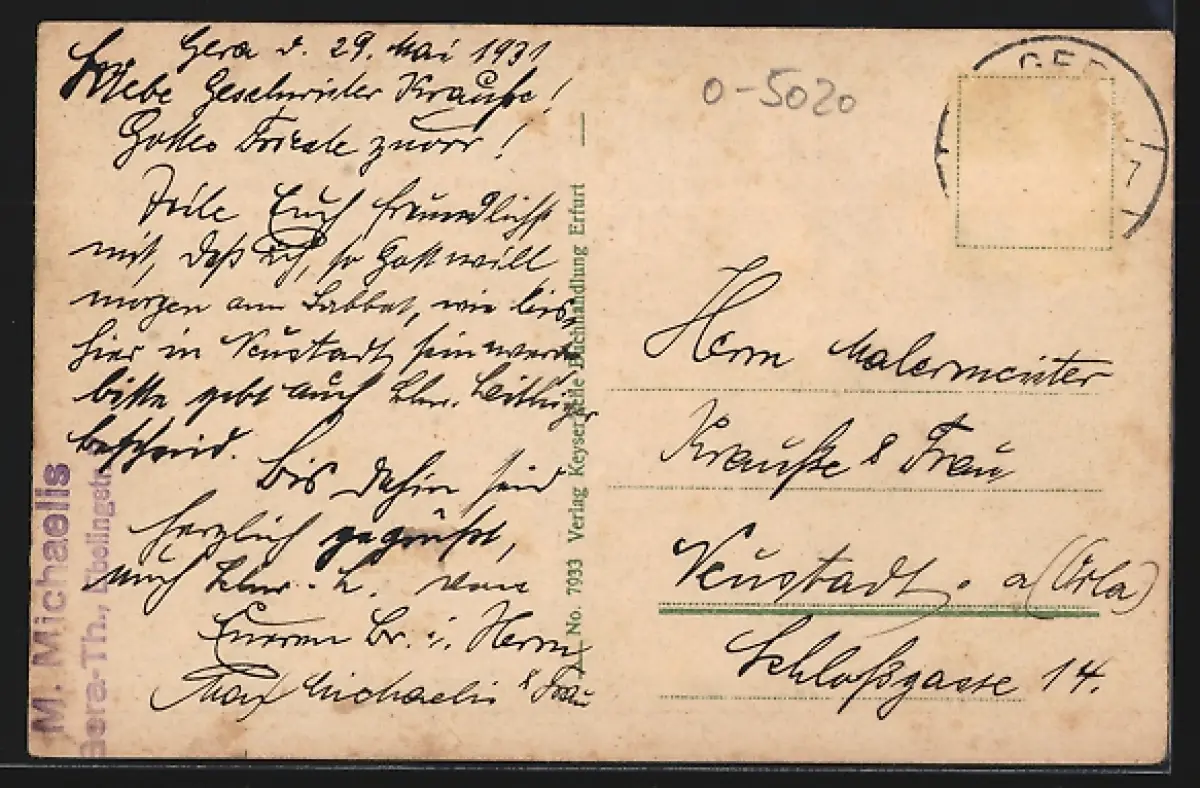 Gera d. 29. Mai 1931
Liebe Geschwister Krauße!
Gottes Friede zuvor!
Teile Euch freundlichst
mit, daß ich, so Gott will
morgen am Sabbat, wie bis-
hier in Neustadt sein werde
bitte gebt auch Schw.
bescheid.
Bis dahin seid
herzlich gegrüßt,
auch Schw. L. von
Eurem Br. i. Herrn
Max Michaelis & Frau
M. Michaelis
Gera-Th., Ebelingstr.
No. 7933 Verlag Keysersche Buchhandlung Erfurt
0-5020
GER
7
Herrn Malermeister
Krauße & Frau
Neustadt. a (Orla)
Schloßgasse 14.